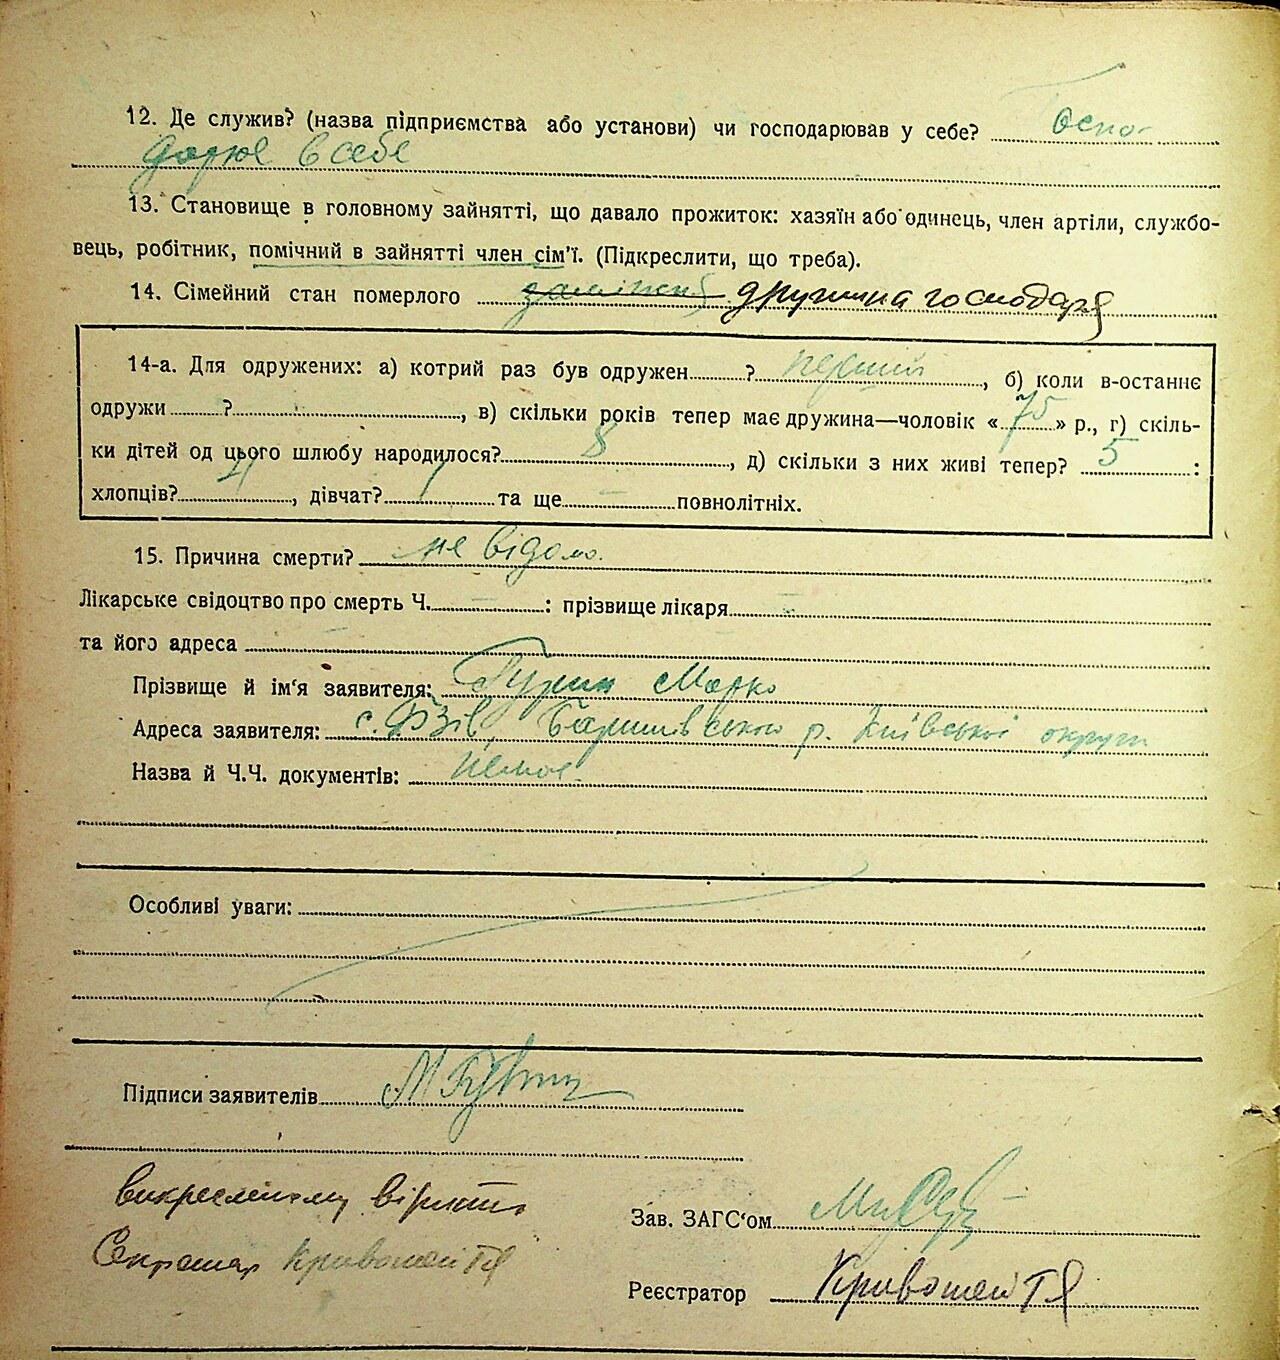 12. Де служив? (назва підприємства або установи) чи господарював у себе?
дарює в себе
13. Становище в головному зайнятті, що давало прожиток: хазяїн або одинець, член артіли, службо-
вець, робітник, помічний в зайнятті член сім'ї. (Підкреслити, що треба).
14. Сімейний стан померлого заміжня дружина господаря
14-а. Для одружених: а) котрий раз був одружен ? перший, б) коли в-останнє
одружи ? , в) скільки років тепер має дружина—чоловік «75» р., г) скіль-
ки дітей од цього шлюбу народилося? 8, д) скільки з них живі тепер? 5 :
хлопців? 4, дівчат? 1 та ще – повнолітніх.
15. Причина смерти? не відомо.
Лікарське свідоцтво про смерть Ч. – : прізвище лікаря –
та його адреса –
Прізвище й ім'я заявителя: Марко
Адреса заявителя: с. Бзів, Баришівського р. Київської округи
Назва й Ч.Ч. документів: немає.
Особливі уваги:
Підписи заявителів
викресленому вірити
Секретар Кривошей ТЯ
Зав. ЗАГС'ом
Реєстратор Кривошей ТЯ